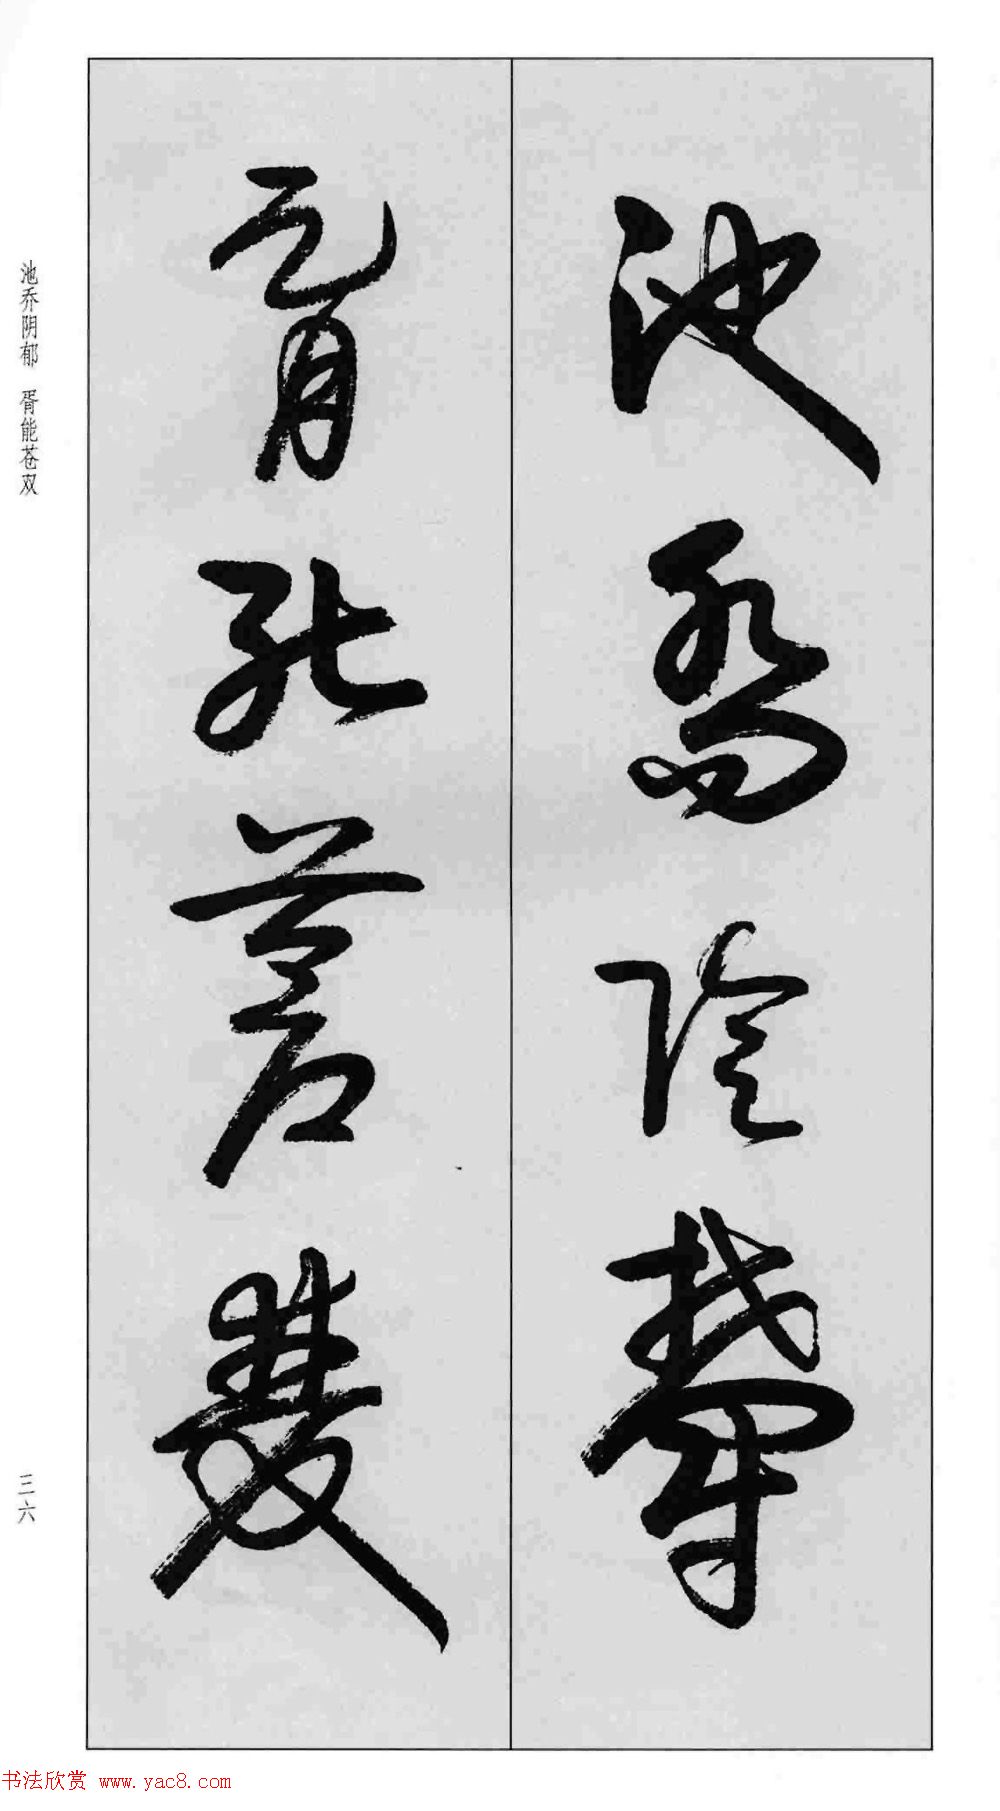 池喬陰鬱
胥能蒼雙
池乔阴郁 胥能苍双
三六
书法欣赏 www.yac8.com